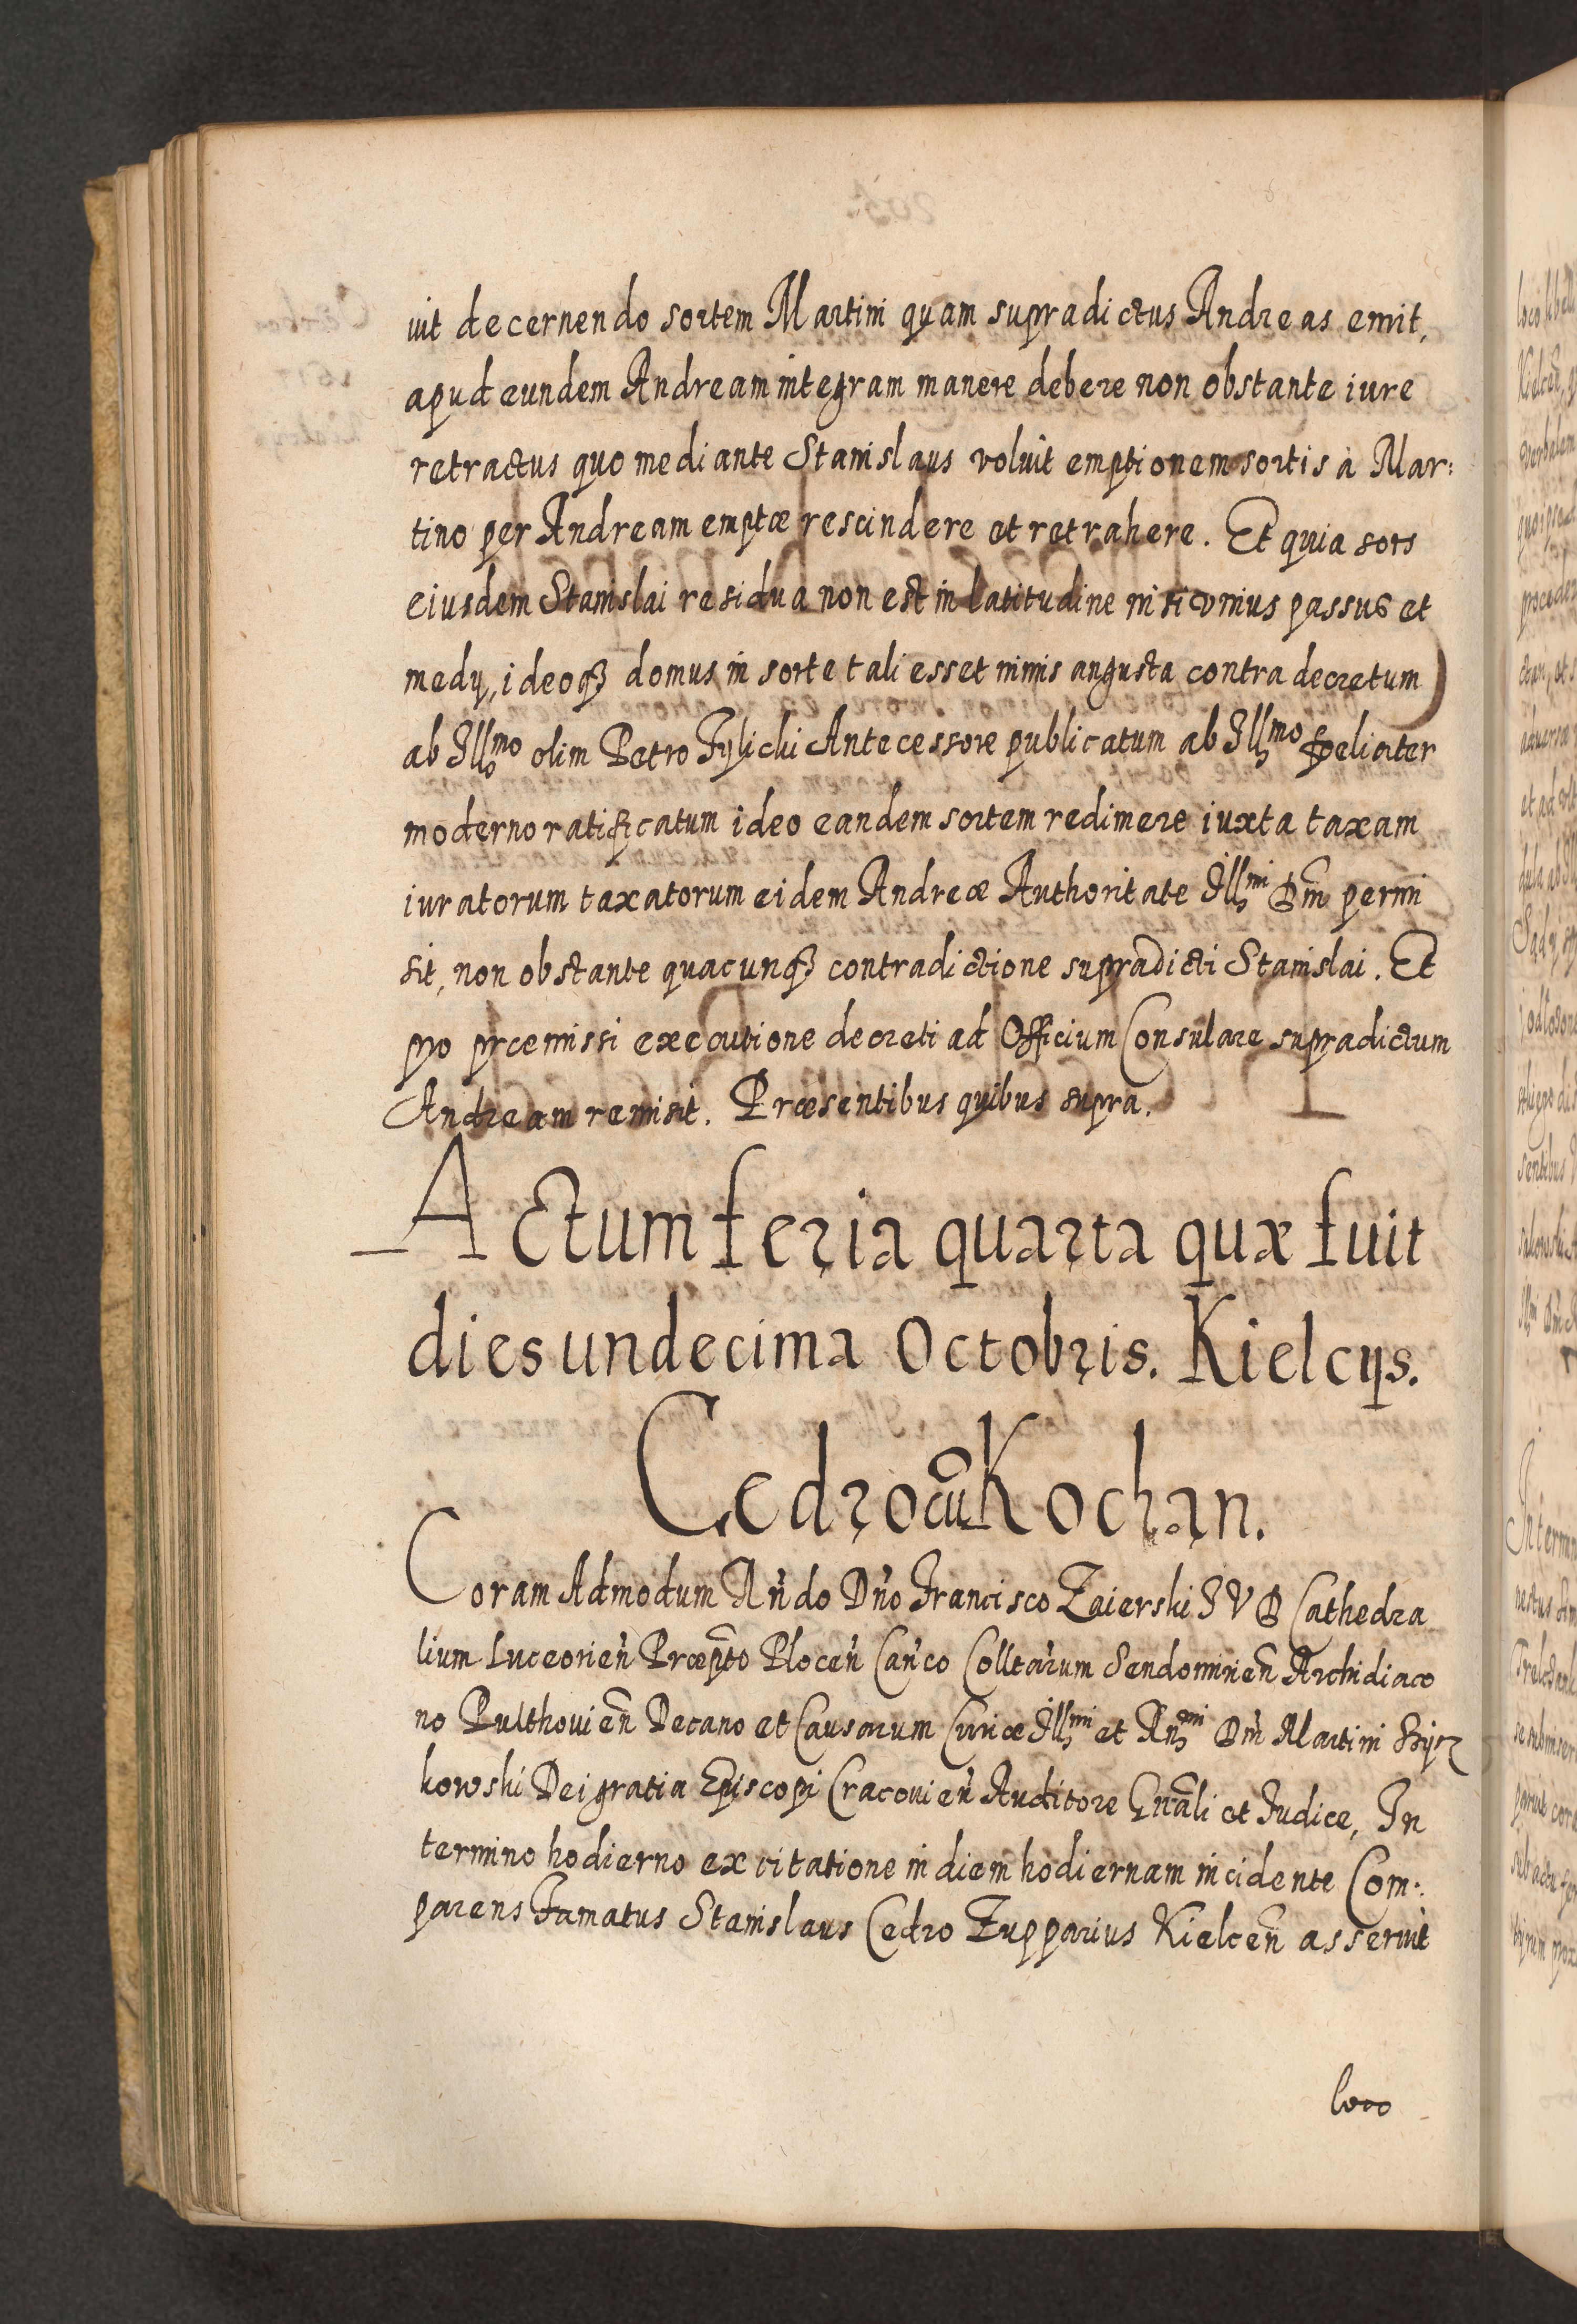 uit decernendo sortem Martini quam supradictus Andreas emit,
apud eundem Andream integram manere debere non obstante iure
retractus quo mediante Stanislaus voluit emptionem sortis à Mar:
tino per Andream emptæ rescindere et retrahere. Et quia sors
eiusdem Stanislai residua non est in latitudine nisi vnius passus et
medÿ, ideoqꝫ domus in sorte tali esset nimis angusta contra decretum
ab Illmo olim Petro Tylicki Antecessore publicatum ab Illmo fœliciter
moderno ratificatum ideo eandem sortem redimere iuxta taxam
iuratorum taxatorum eidem Andreæ Authoritate Illmi Dni permi
sit, non obstante quacunqꝫ contradictione supradicti Stanislai. Et
pro præmissi executione decreti ad Officium Consulare supradictum
Andream remisit. Præsentibus quibus supra.
Actum feria quarta quæ fuit
dies undecima Octobris. Kielcÿs.
Cedro cū Kochan.
Coram Admodum Rndo Dno Francisco Zaierski I V D Cathedra
lium Luceorien Præpto Plocen Canco Colltarum Sendomirien Archidiaco
no Pulthouien Decano et Causarum Curiæ Illmi et Rnmi Dni Martini Szÿsz
kowski Dei gratia Episcopi Cracouien Auditore Gnali et Iudice, In
termino hodierno ex citatione in diem hodiernam incidente Com:
parens Famatus Stanislaus Cedro Zupparius Kielcen asseruit
loco